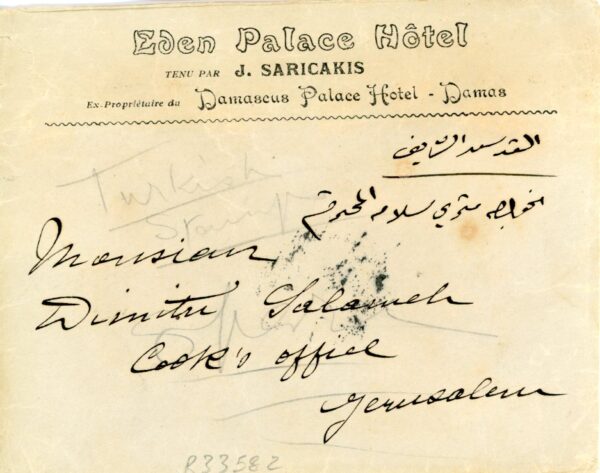 Eden Palace Hôtel
TENU PAR J. SARICAKIS
Ex-Propriétaire du Damascus Palace Hotel - Damas
القدس الشريف
الخواجه متري سلامه المحترم
Turkish
Stamp
Monsieur
Dimitri Salameh
Cook's office
Jerusalem
R33582